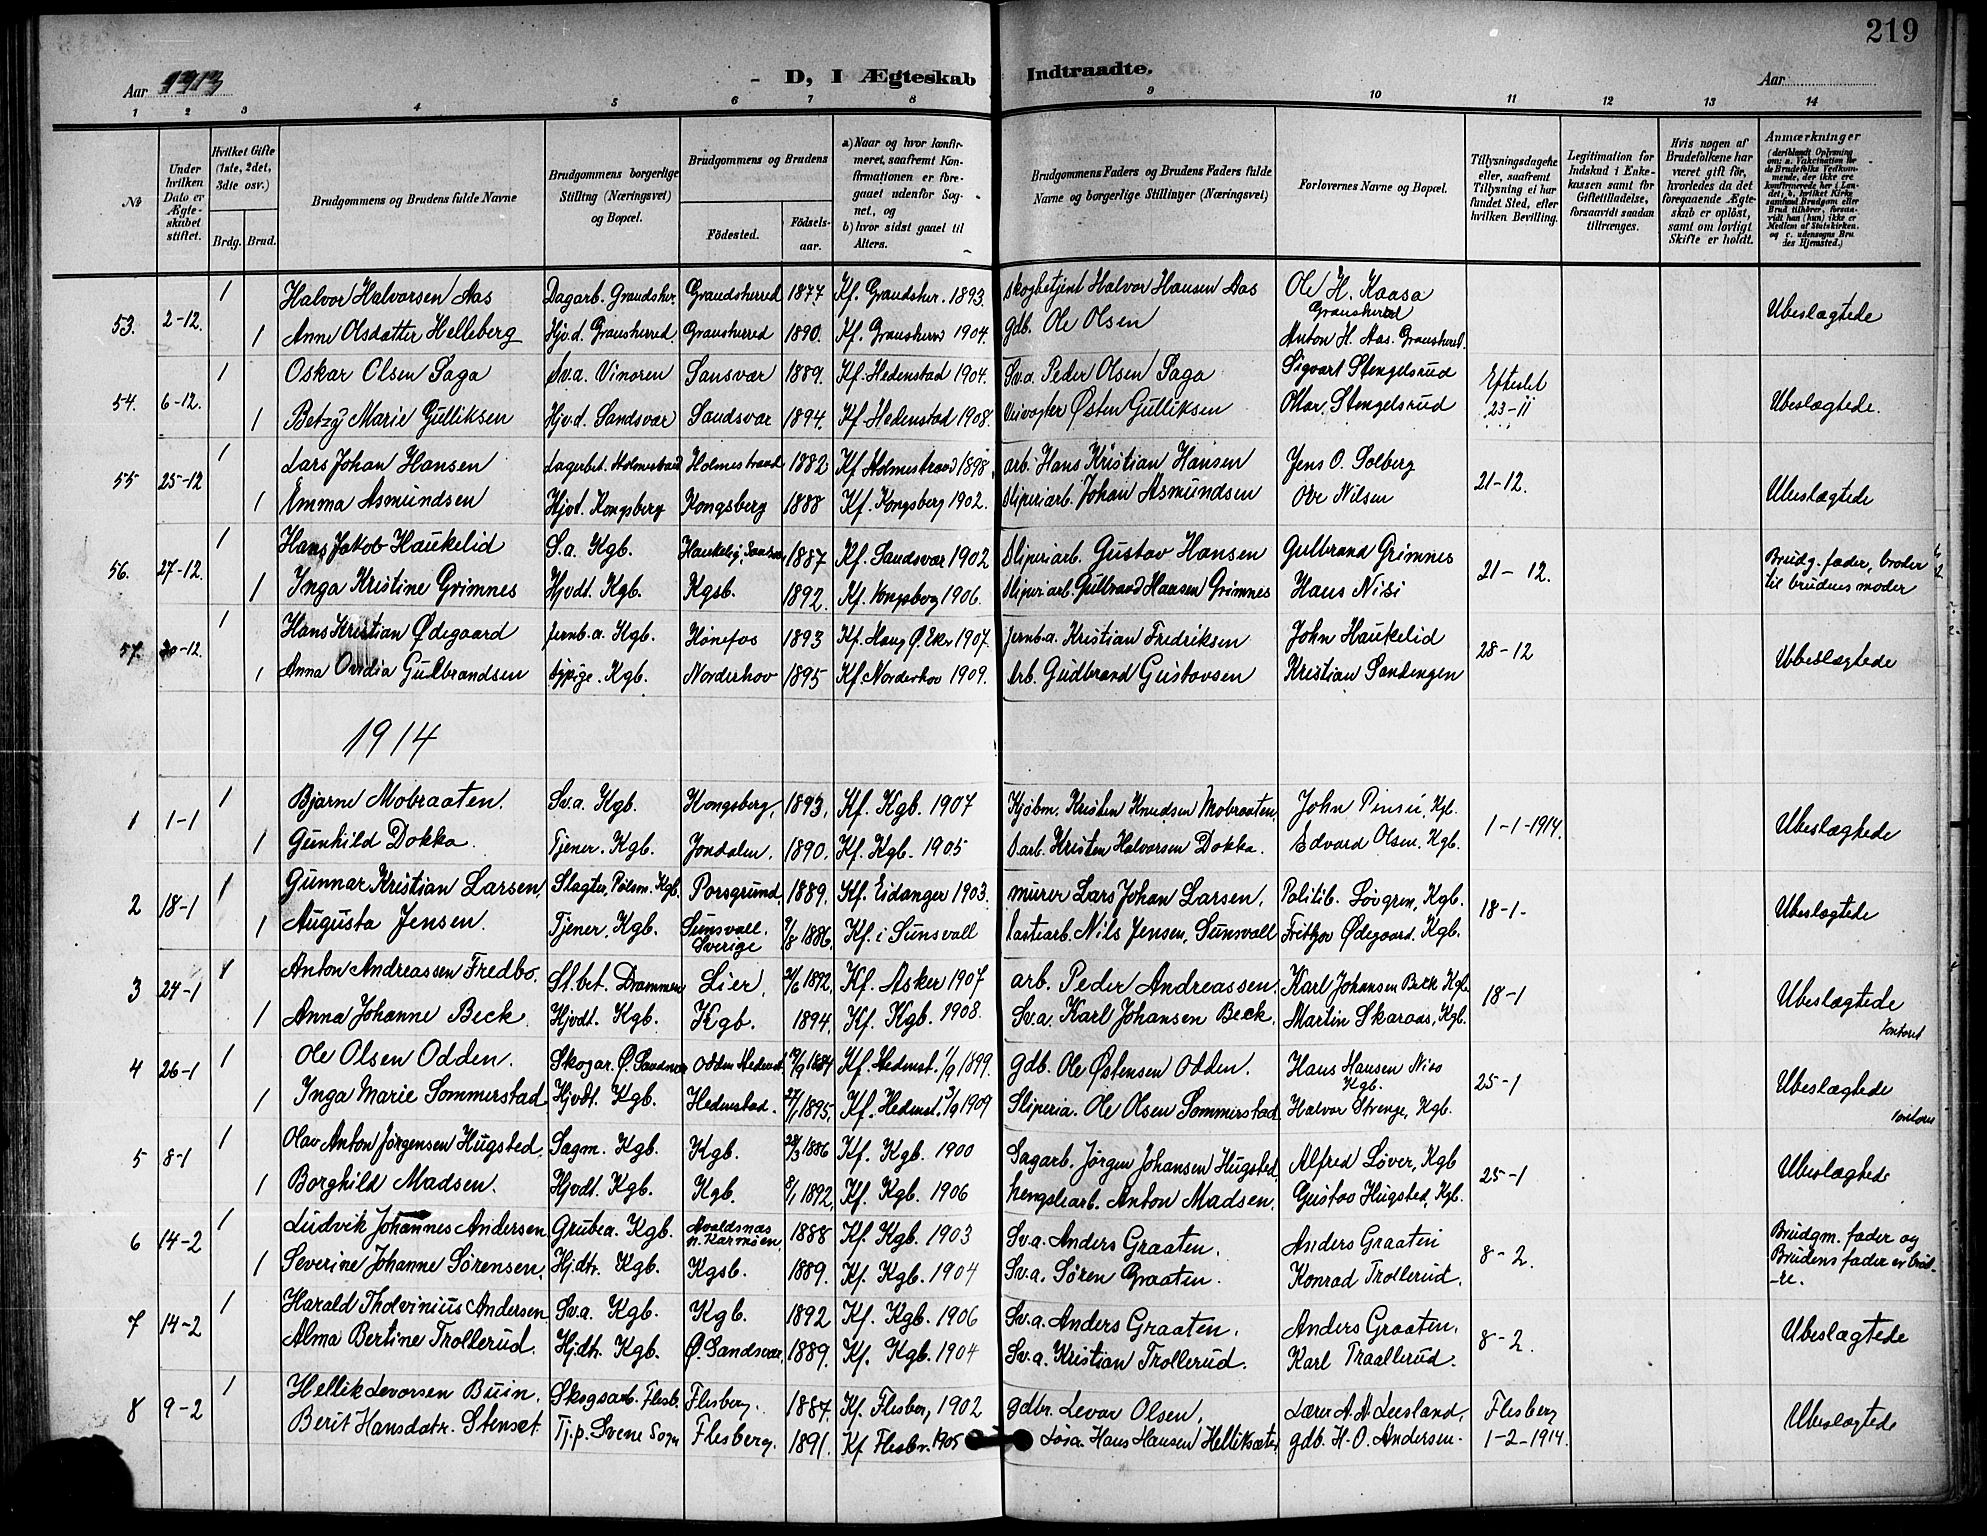 219
Aar 1913
D, I Ægteskab Indtraadte.
Aar
1 2 3 4 5 6 7 8 9 10 11 12 13 14
No
Under hvilken Dato er Ægteskabet stiftet.
Hvilket Gifte (1ste, 2det, 3die osv.)
Brdg. Brud.
Brudgommens og Brudens fulde Navne
Brudgommens borgerlige Stilling (Næringsvei) og Bopæl.
Brudgommens og Brudens
Födested. Födselsaar.
a) Naar og hvor konfirmeret, saafremt Konfirmationen er foregaaet udenfor Sognet, og
b) hvor sidst gaaet til Alters.
Brudgommens Faders og Brudens Faders fulde Navne og borgerlige Stillinger (Næringsvei)
Forlovernes Navne og Bopæl.
Tillysningsdagene eller, saafremt Tillysning ei har fundet Sted, efter hvilken Bevilling.
Legitimation for Indskud i Enkekassen samt for Giftetilladelse, forsaavidt saadan tiltrænges.
Hvis nogen af Brudefolkene har været gift för, hvorledes da det foregaaende Ægteskab er oplöst, samt om lovligt Skifte er holdt.
Anmærkninger
53. 2-12. 1 Halvor Halvorsen Aas Dagarb. Grandsher. Grandsherred 1877 Kf. Grandsher. 1893. Skogbetjent Halvor Hansen Aas Ole H. Kaasa Gransherred Ubeslægtede
1 Anne Olsdatter Helleberg Hjv.d. Gransherred. Gransherred 1890. Kf. Gransherred 1904. gdb. Ole Olsen Anton H. Aas. Gransherred.
54. 6-12. 1 Oskar Olsen Saga Sv.a. Vinoren Sansvær 1889. Kf. Hedenstad 1904. Sv.a. Peder Olsen Saga Sigvart Stengelsrud 23-11 Ubeslægtede.
1 Betzy Marie Gulliksen Hjv.d. Sandsvær Sandsvær 1894. Kf. Hedenstad 1908. Veivogter Østen Gulliksen Ottar Stengelsrud
55 25-12 1 Lars Johan Hansen Lagerbet. Holmestrand Holmestrand 1882 Kf. Holmestrand 1898 arb. Hans Kristian Hansen Jens O. Solberg 21-12. Ubeslægtede
1 Emma Asmundsen Hjvd. Kongsberg Kongsberg 1888 Kf. Kongsberg 1902. Sliperiarb. Johan Asmundsen Ove Nilsen
56. 27-12. 1 Hans Jakob Haukelid S.a. Kgb. 1887 Kf. Sandsvær 1902 Sliperiarb. Gustav Hansen Gulbrand Grimnes 21-12. Brudg. fader, broder
1 Inga Kristine Grimnes Hjvdt. Kgb. Kgsb. 1892. Kf. Kongsberg 1906. Sliperiarb. Gulbrand Hansen Grimnes Hans Nisi til brudens moder
57. 30-12. 1 Hans Kristian Ødegaard Jernb.a. Kgb. Hönefos 1893 Kf. Haug Ø. Eker 1907. Jernb.a. Kristian Fredriksen John Haukelid 28-12 Ubeslægtede
1 Anna Ovidia Gulbrandsen Sypige. Kgb. Norderhov 1895 Kf. Norderhov 1909. Arb. Gudbrand Gustavsen Kristian Sandengen
1914
1 1-1 1 Bjarne Mobraaten. Sv.a. Kgb. Kongsberg, 1893, Kf. Kgb. 1907 Kjøbm. Kristen Knudsen Mobraaten John Kgb. 1-1-1914. Ubeslægtede
1 Gunhild Dokka. Tjener. Kgb. Jondalen. 1890. Kf. Kgb. 1905 Kristen Halvorsen Dokka. Edvard Olsen. Kgb.
2 18-1 1 Gunnar Kristian Larsen, Slagter, Pölsm. Kgb. Porsgrund, 1889. Kf. Eidanger 1903. murer Lars Johan Larsen, Politib. Løvgren, Kgb. 18-1- Ubeslægtede
1 Augusta Jensen. Tjener. Kgb. Sunsvall. Sverige 7/8 1886. Kf. i Sunsvall Nils Jensen, Sunsvall Fritjov Ødegaard. Kgb.
3 24-1 1 Anton Andreassen Fredbo. St.bet. Drammen Lier, 1892, Kf. Asker 1907 arb. Peder Andreassen Karl Johansen Beck Kgb. 18-1 Ubeslægtede
1 Anna Johanne Beck. Hjvdt. Kgb. Kgb. 1894. Kf. Kgb. 1908. Sv.a. Karl Johansen Beck. Martin Skaraas, Kgb.
4 26-1 1 Ole Olsen Odden. Skogar. Ø. Sandsvær Odden Hedenst. 19/9 1884 Kf. Hedenst. 1/9 1899. gdb. Ole Østensen Odden. Hans Hansen Kgb. 25-1 Ubeslægtede
1 Inga Marie Sommerstad Hjvdt. Kgb. Hedenstad. 27/1 1895, Kf. Hedenst. 3/9 1909 Sliperia. Ole Olsen Sommerstad Halvor Strenge, Kgb.
5 8-1 1 Olav Anton Jørgensen Hugsted. Sagm. Kgb. Kgb. 28/3 1886 Kf. Kgb. 1900 Sagarb. Jørgen Johansen Hugsted, Alfred Løver, Kgb 25-1 Ubeslægtede
1 Borghild Madsen. Hjvdt. Kgb. Kgb. 8/1 1892, Kf. Kgb. 1906 hengslearb. Anton Madsen. Gustav Hugsted, Kgb.
6 14-2 1 Ludvik Johannes Andersen Grubea. Kgb. Avaldsnæs n. Karmøen, 1888 Kf. Kgb. 1903 Sv.a. Anders Graaten. Anders Graaten 8-2. Brudgm. fader og
1 Severine Johanne Sörensen. Hjdtr. Kgb. Kgsb. 1889. Kf. Kgb. 1904 Sv.a. Sören Graaten. Konrad Trollerud. Brudens fader er brød-re.
7 14-2 1 Harald Tholvinius Andersen Sv.a. Kgb. Kgb. 1892 Kf. Kgb. 1906 Sv.a. Anders Graaten. Anders Graaten. 8-2. Ubeslægtede
Alma Bertine Trollerud. Hjdtr. Kgb. Ø. Sandsvær, 1889. Kf. Kgb. 1904 Sv.a. Kristian Trollerud. Karl Traallerud.
8 9-2 1 Hellik Levorsen Buin. Skogsarb. Flesb. Flesberg. 1887. Kf. Flesber, 1902 gdbr. Levor Olsen, Lærer A. A. Leesland, Flesberg Ubeslægtede
Berit Hansdatr. Stenset Tj.p. Svene Sogn Flesberg. 1891. Kf. Flesbr. 1905 Hans Hansen Helliksæter gdb. H. O. Andersen. 1-2-1914.